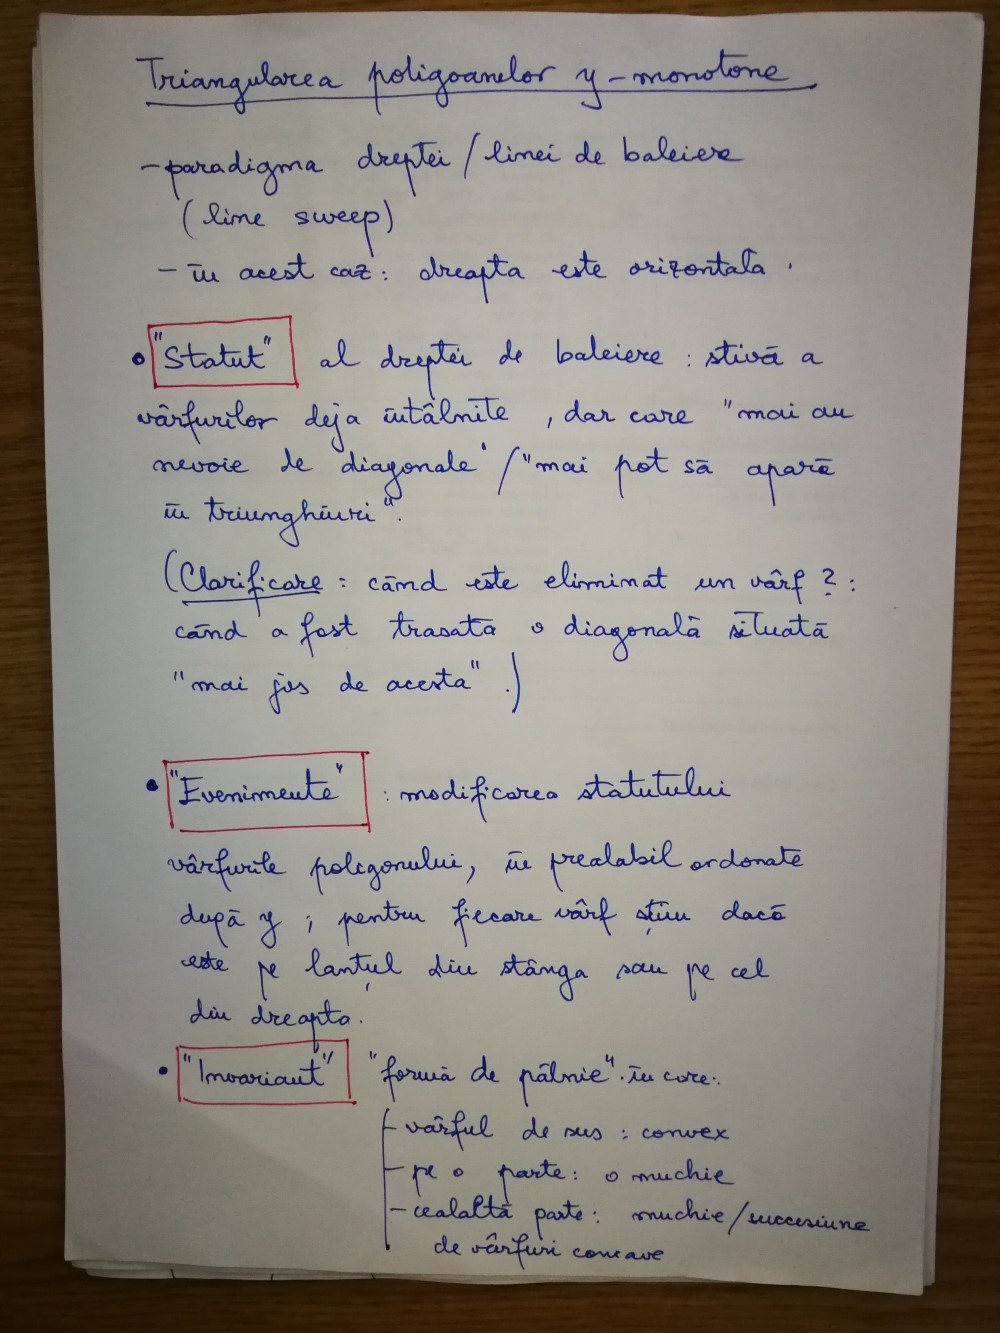 Triangularea poligoanelor y-monotone
- paradigma dreptei / liniei de baleiere
(line sweep)
- în acest caz: dreapta este orizontală.
• "Statut" al dreptei de baleiere : stivă a
vârfurilor deja întâlnite, dar care "mai au
nevoie de diagonale" / "mai pot să apară
în triunghiuri".
(Clarificare : când este eliminat un vârf ? :
când a fost trasată o diagonală situată
"mai jos de acesta".)
• "Evenimente" : modificarea statutului
vârfurile poligonului, în prealabil ordonate
după y ; pentru fiecare vârf știm dacă
este pe lanțul din stânga sau pe cel
din dreapta.
• "Invariant" "formă de pâlnie". în care:
- vârful de sus : convex
- pe o parte : o muchie
- cealaltă parte : muchie / succesiune
de vârfuri concave